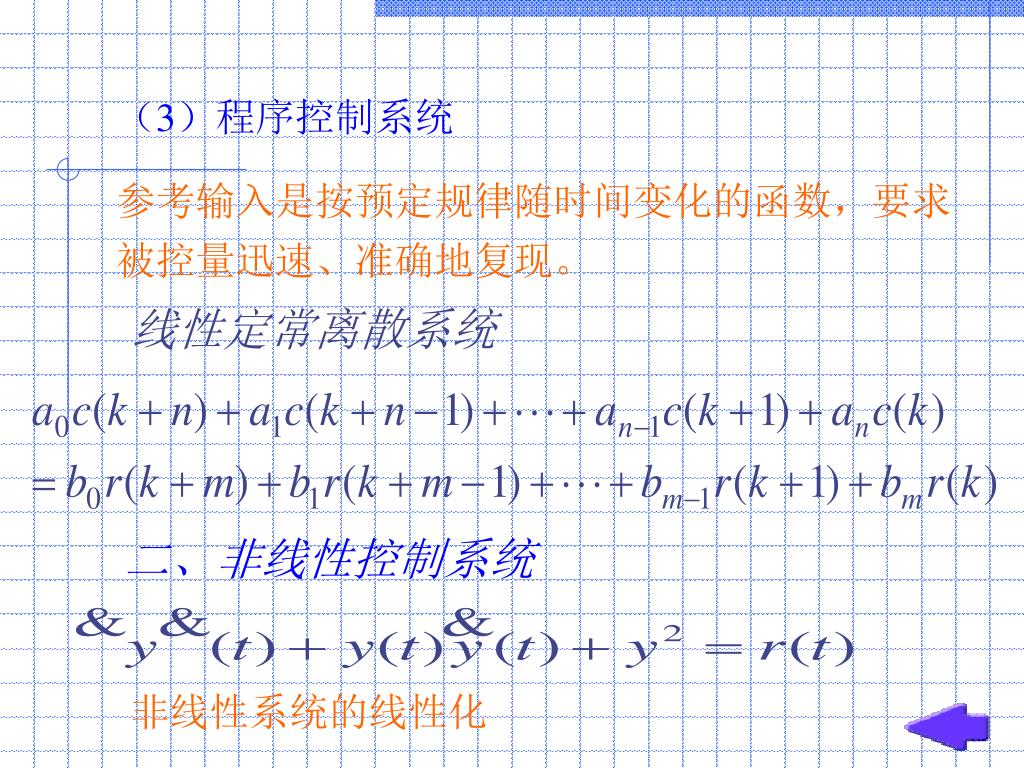 （3）程序控制系统
参考输入是按预定规律随时间变化的函数，要求
被控量迅速、准确地复现。
线性定常离散系统
a₀c(k + n) + a₁c(k + n − 1) + ⋯ + aₙ₋₁c(k + 1) + aₙc(k)
= b₀r(k + m) + b₁r(k + m − 1) + ⋯ + bₘ₋₁r(k + 1) + bₘr(k)
二、非线性控制系统
&y&(t) + y(t)y&(t) + y² = r(t)
非线性系统的线性化